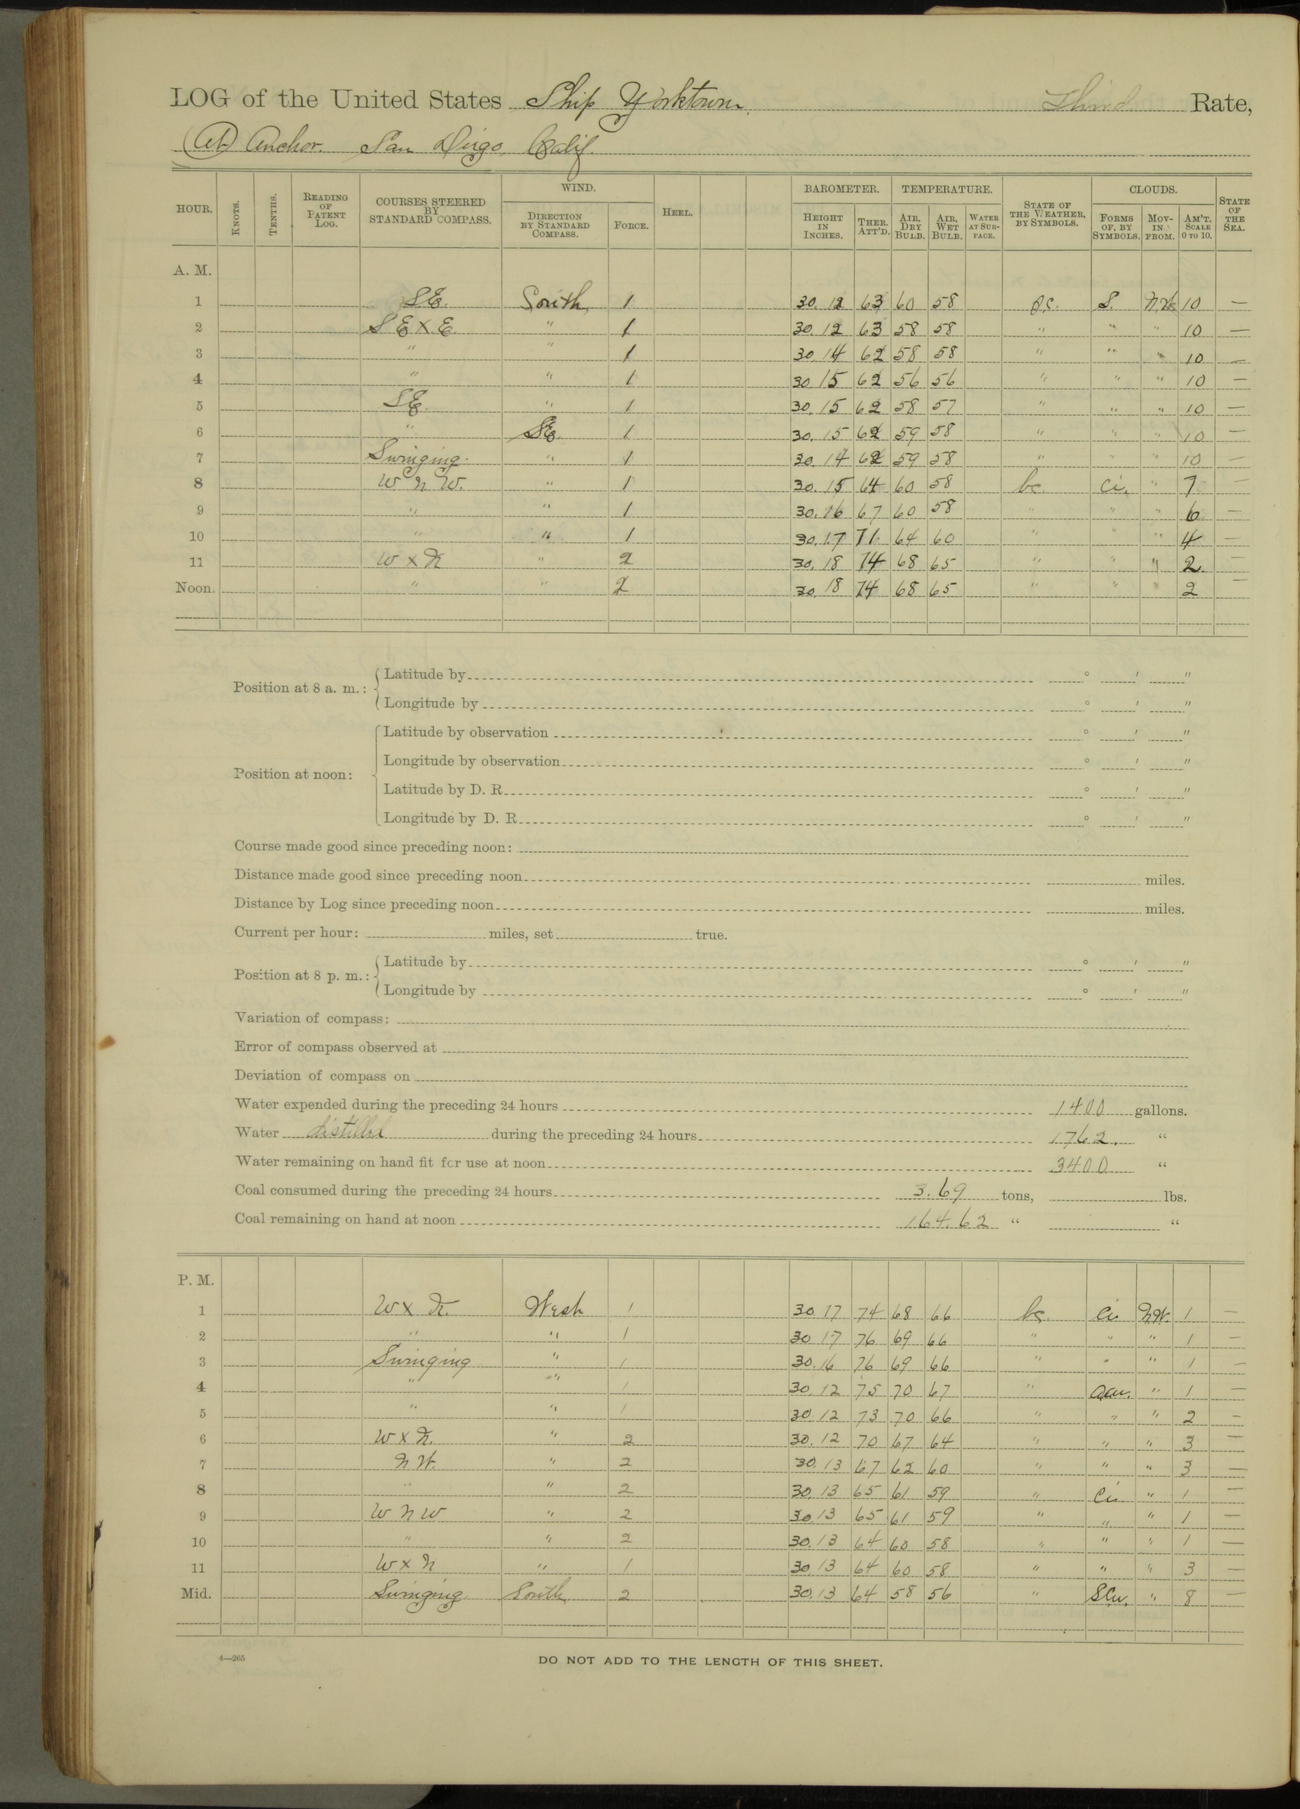 LOG of the United States Ship Yorktown, Third Rate,
(At) Anchor. San Diego, Calif.
HOUR. KNOTS. TENTHS. READING OF PATENT LOG. COURSES STEERED BY STANDARD COMPASS. WIND. DIRECTION BY STANDARD COMPASS. FORCE. HEEL. BAROMETER. HEIGHT IN INCHES. THER. ATT'D. TEMPERATURE. AIR, DRY BULB. AIR, WET BULB. WATER AT SURFACE. STATE OF THE WEATHER, BY SYMBOLS. CLOUDS. FORMS OF, BY SYMBOLS. MOVING FROM. AM'T. SCALE 0 TO 10. STATE OF THE SEA.
A. M.
1 SE. South 1 30.12 63 60 58 S. 10 —
2 SExE. " 1 30.12 63 58 58 " " " 10 —
3 " " 1 30.14 62 58 58 " " " 10 —
4 " " 1 30.15 62 56 56 " " " 10 —
5 SE. " 1 30.15 62 58 57 " " " 10 —
6 " SE. 1 30.15 62 59 58 " " " 10 —
7 Swinging. " 1 30.14 62 59 58 " " " 10 —
8 W N W. " 1 30.15 64 60 58 bc ci. " 7 —
9 " " 1 30.16 67 60 58 " " " 6 —
10 " " 1 30.17 71 64 60 " " " 4 —
11 W x N " 2 30.18 74 68 65 " " " 2 —
Noon. " " 2 30.18 74 68 65 " " " 2 —
Position at 8 a. m.: Latitude by ° ' "
Longitude by ° ' "
Position at noon: Latitude by observation ° ' "
Longitude by observation ° ' "
Latitude by D. R. ° ' "
Longitude by D. R. ° ' "
Course made good since preceding noon:
Distance made good since preceding noon miles.
Distance by Log since preceding noon miles.
Current per hour: miles, set true.
Position at 8 p. m.: Latitude by ° ' "
Longitude by ° ' "
Variation of compass:
Error of compass observed at
Deviation of compass on
Water expended during the preceding 24 hours 1400 gallons.
Water distilled during the preceding 24 hours 1762. "
Water remaining on hand fit for use at noon 3400 "
Coal consumed during the preceding 24 hours 3.69 tons, lbs.
Coal remaining on hand at noon 164.62 " "
P. M.
1 W x N. West 1 30.17 74 68 66 bc ci. N.W. 1 —
2 " " 1 30 17 76 69 66 " " " 1 —
3 Swinging " 1 30.16 76 69 66 " " " 1 —
4 " " 1 30.12 75 70 67 " " 1 —
5 " " 1 30 12 73 70 66 " " " 2 —
6 W x N. " 2 30.12 70 67 64 " " " 3 —
7 N W. " 2 30.13 67 62 60 " " " 3 —
8 " " 2 30.13 65 61 59 " Ci " 1 —
9 W N W " 2 30 13 65 61 59 " " " 1 —
10 " " 2 30.13 64 60 58 " " " 1 —
11 W x N " 1 30 13 64 60 58 " " " 3 —
Mid. Swinging South 2 30.13 64 58 56 " SCu. " 8 —
4—265
DO NOT ADD TO THE LENGTH OF THIS SHEET.